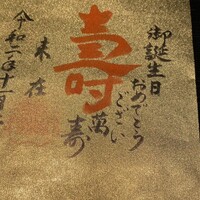 御誕生日
おめでとう
ござい
萬寿
壽
未在
令和二年十一月